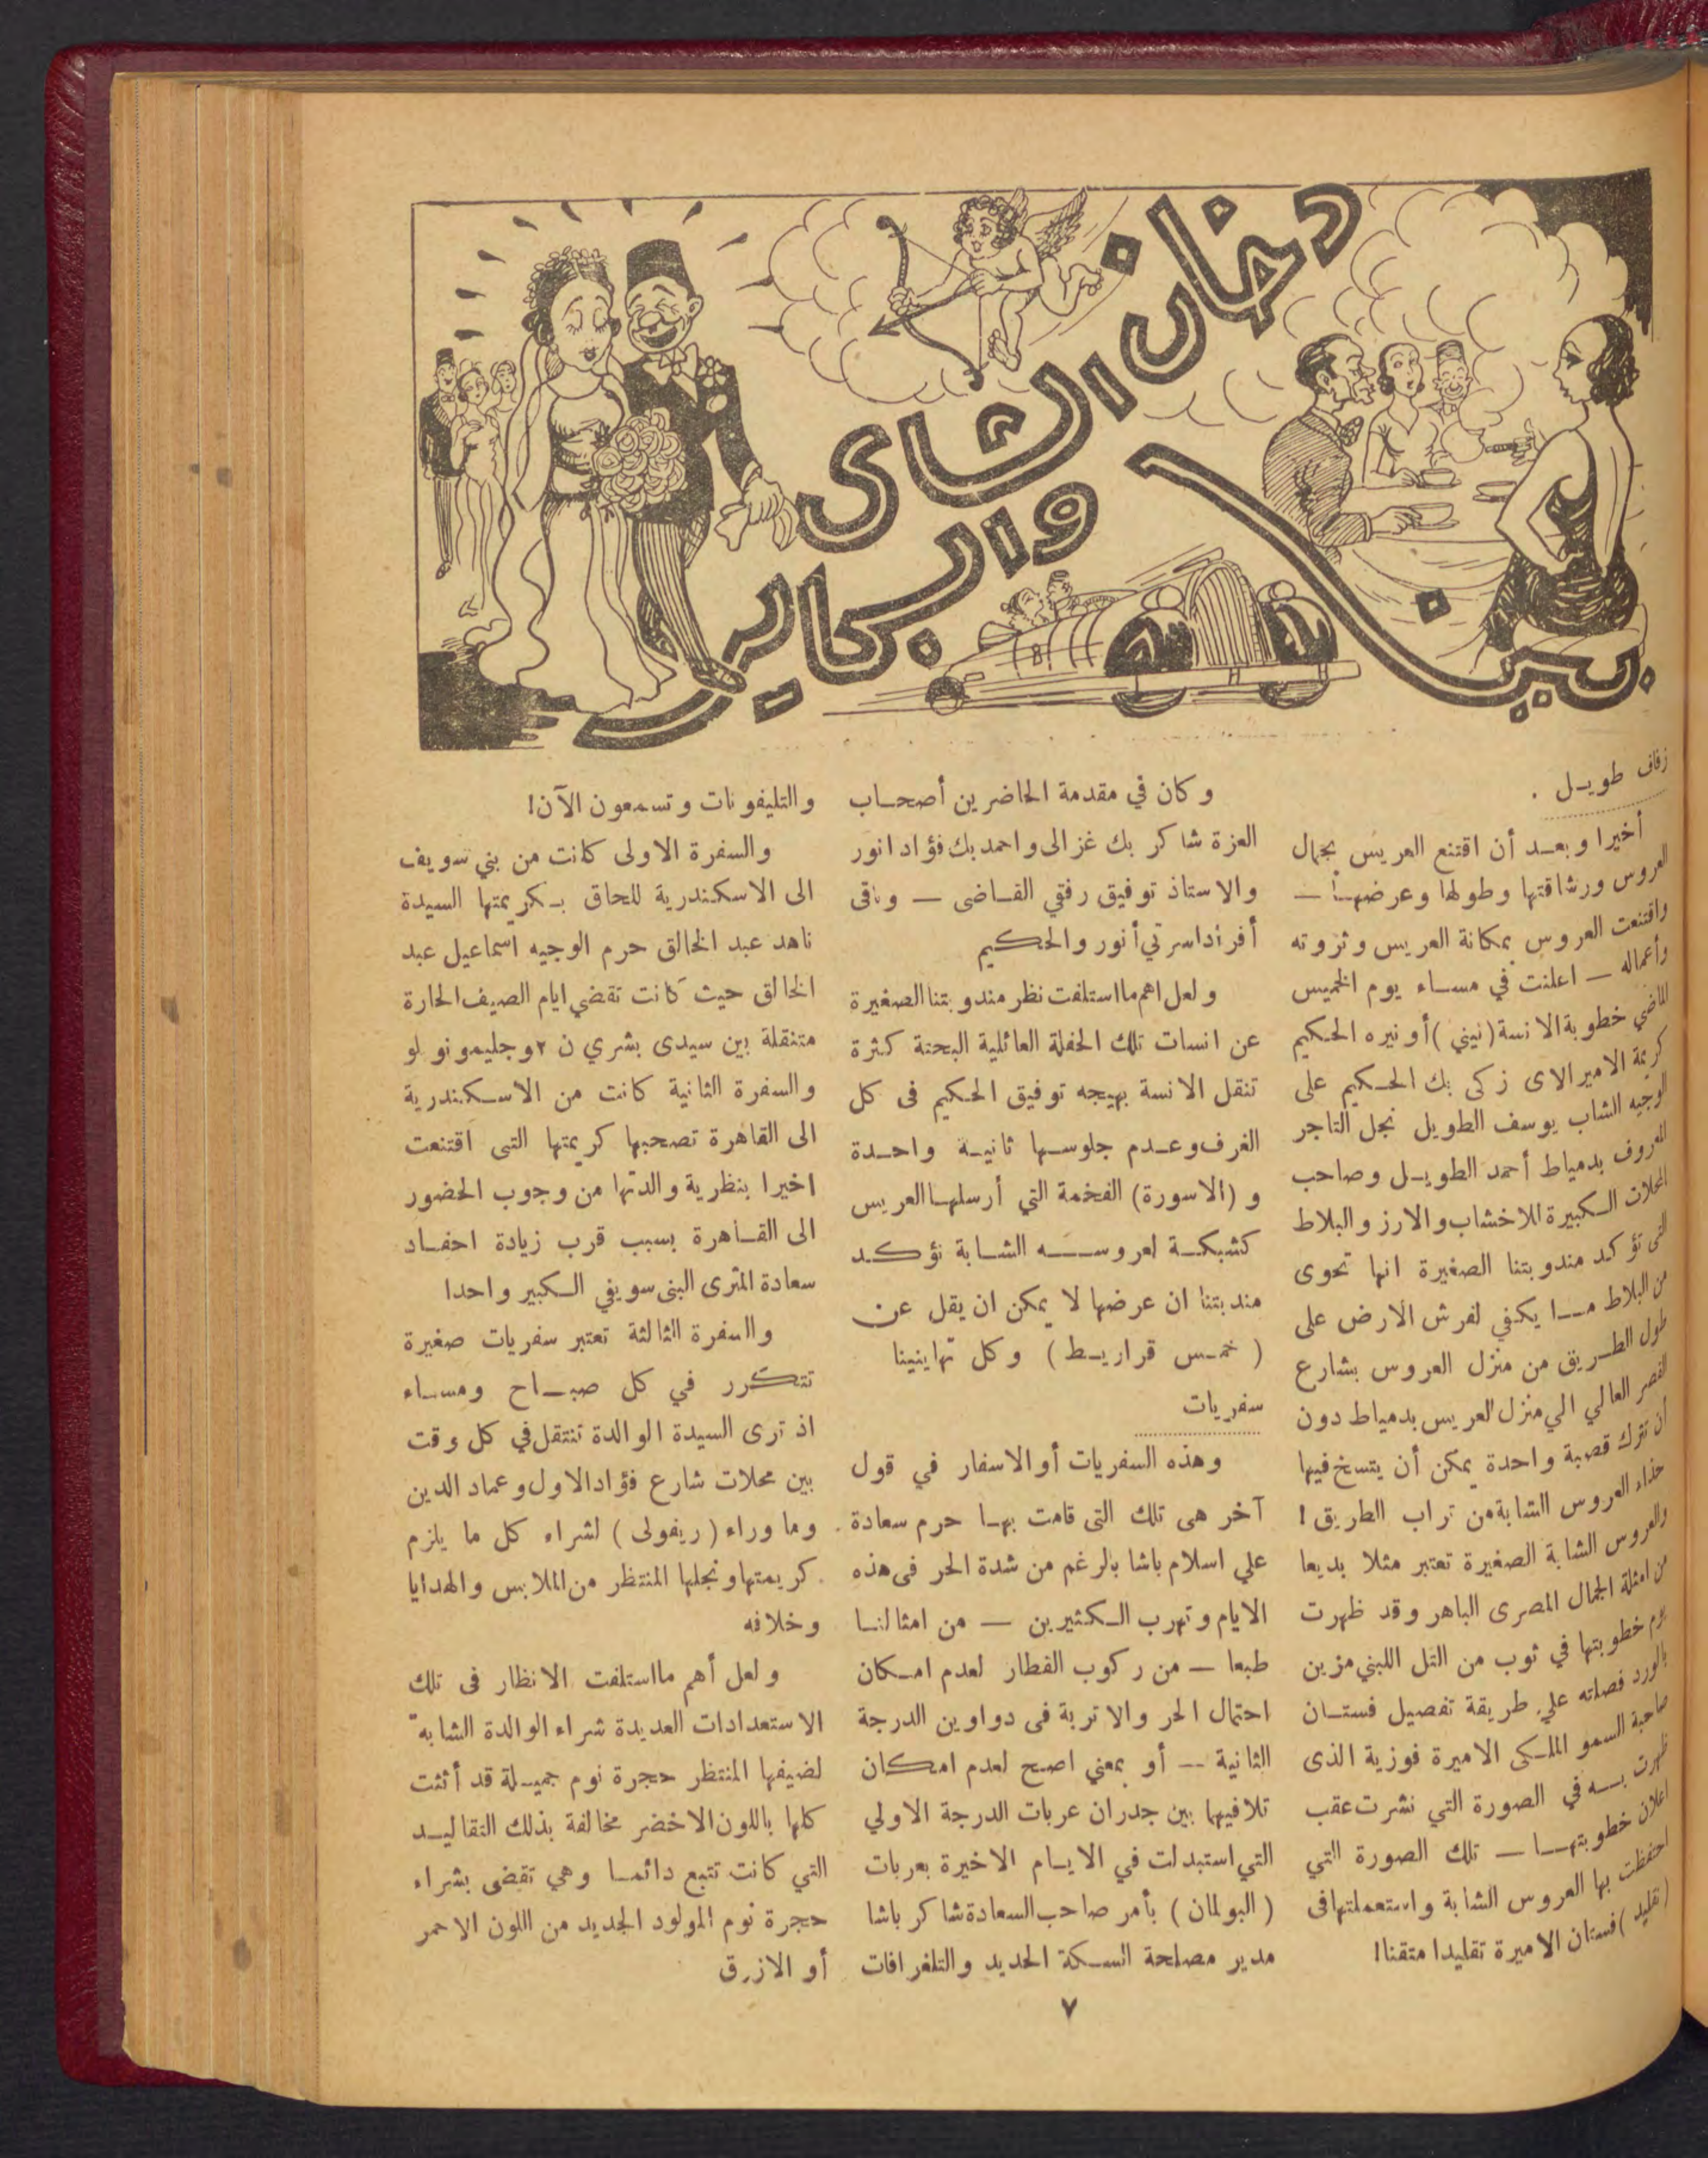 بين دخان الشاى والسجاير
زفاف طويـل .
أخيرا وبعـد أن اقتنع العريس بجمال
العروس ورشاقتها وطولها وعرضهـا —
واقتنعت العروس بمكانة العريس وثروته
وأعماله — اعلنت في مسـاء يوم الخميس
الماضي خطوبة الانسة (نيني) أو نيره الحكيم
كريمة الاميرالاى زكى بك الحكيم على
الوجيه الشاب يوسف الطويل نجل التاجر
المعروف بدمياط أحمد الطويـل وصاحب
المحلات الكبيرة للاخشاب والارز والبلاط
التى تؤكد مندوبتنا الصغيرة انها تحوى
من البلاط مـا يكفي لفرش الارض على
طول الطـريق من منزل العروس بشارع
القصر العالي الي منزل العريس بدمياط دون
ان تترك قصبة واحدة يمكن أن يتسخ فيها
حذاء العروس الشابة من تراب الطريق !
والعروس الشابة الصغيرة تعتبر مثلا بديعا
من امثلة الجمال المصرى الباهر وقد ظهرت
يوم خطوبتها في ثوب من التل اللبني مزين
بالورد فصلته علي طريقة تفصيل فستـان
صاحبة السمو الملكى الاميرة فوزية الذى
ظهرت بـه في الصورة التي نشرت عقب
اعلان خطوبتهـا — تلك الصورة التي
احتفظت بها العروس الشابة واستعملتها فى
(تقليد) فستان الاميرة تقليدا متقنا !
وكان في مقدمة الحاضرين أصحـاب
العزة شاكر بك غزالى واحمد بك فؤاد انور
والاستاذ توفيق رفقي القـاضى — وباقى
أفراد اسرتي أنور والحكيم
ولعل اهم ما استلفت نظر مندوبتنا الصغيرة
عن انسات تلك الحفلة العائلية البحتة كثرة
تنقل الانسة بهيجه توفيق الحكيم فى كل
الغرف وعـدم جلوسـها ثانيـة واحـدة
و (الاسورة) الفخمة التي أرسلهـا العريس
كشبكـة لعروسـه الشـابة تؤكـد
مندبتنا ان عرضها لا يمكن ان يقل عن
( خمـس قراريـط ) وكل تهاينينا
سفريات
وهذه السفريات أو الاسفار في قول
آخر هى تلك التى قامت بهـا حرم سعادة
علي اسلام باشا بالرغم من شدة الحر فى هذه
الايام وتهرب الـكثيرين — من امثالنـا
طبعا — من ركوب القطار لعدم امـكان
احتمال الحر والاتربة فى دواوين الدرجة
الثانية — أو بمعني اصح لعدم امكان
تلافيها بين جدران عربات الدرجة الاولي
التي استبدلت في الايـام الاخيرة بعربات
( البولمان ) بأمر صاحب السعادة شاكر باشا
مدير مصلحة السـكة الحديد والتلغرافات
والتليفونات وتسمعون الآن !
والسفرة الاولى كانت من بني سويف
الى الاسكندرية للحاق بـكريمتها السيدة
ناهد عبد الخالق حرم الوجيه اسماعيل عبد
الخالق حيث كانت تقضي ايام الصيف الحارة
متنقلة بين سيدى بشري ن ٢ وجليمونو لو
والسفرة الثانية كانت من الاسـكندرية
الى القاهرة تصحبها كريمتها التى اقتنعت
اخيرا بنظرية والدتها من وجوب الحضور
الى القـاهرة بسبب قرب زيادة احفـاد
سعادة المثرى البنى سويفي الـكبير واحدا
والسفرة الثالثة تعتبر سفريات صغيرة
تتكرر في كل صبـاح ومسـاء
اذ ترى السيدة الوالدة تنتقل في كل وقت
بين محلات شارع فؤاد الاول وعماد الدين
وما وراء (ريفولى) لشراء كل ما يلزم
كريمتها ونجلها المنتظر من الملابس والهدايا
وخلافه
ولعل أهم ما استلفت الانظار فى تلك
الاستعدادات العديدة شراء الوالدة الشابه
لضيفها المنتظر حجرة نوم جميـلة قد أثثت
كلها باللون الاخضر مخالفة بذلك التقاليـد
التي كانت تتبع دائمـا وهي تقضى بشراء
حجرة نوم المولود الجديد من اللون الاحمر
أو الازرق
٧